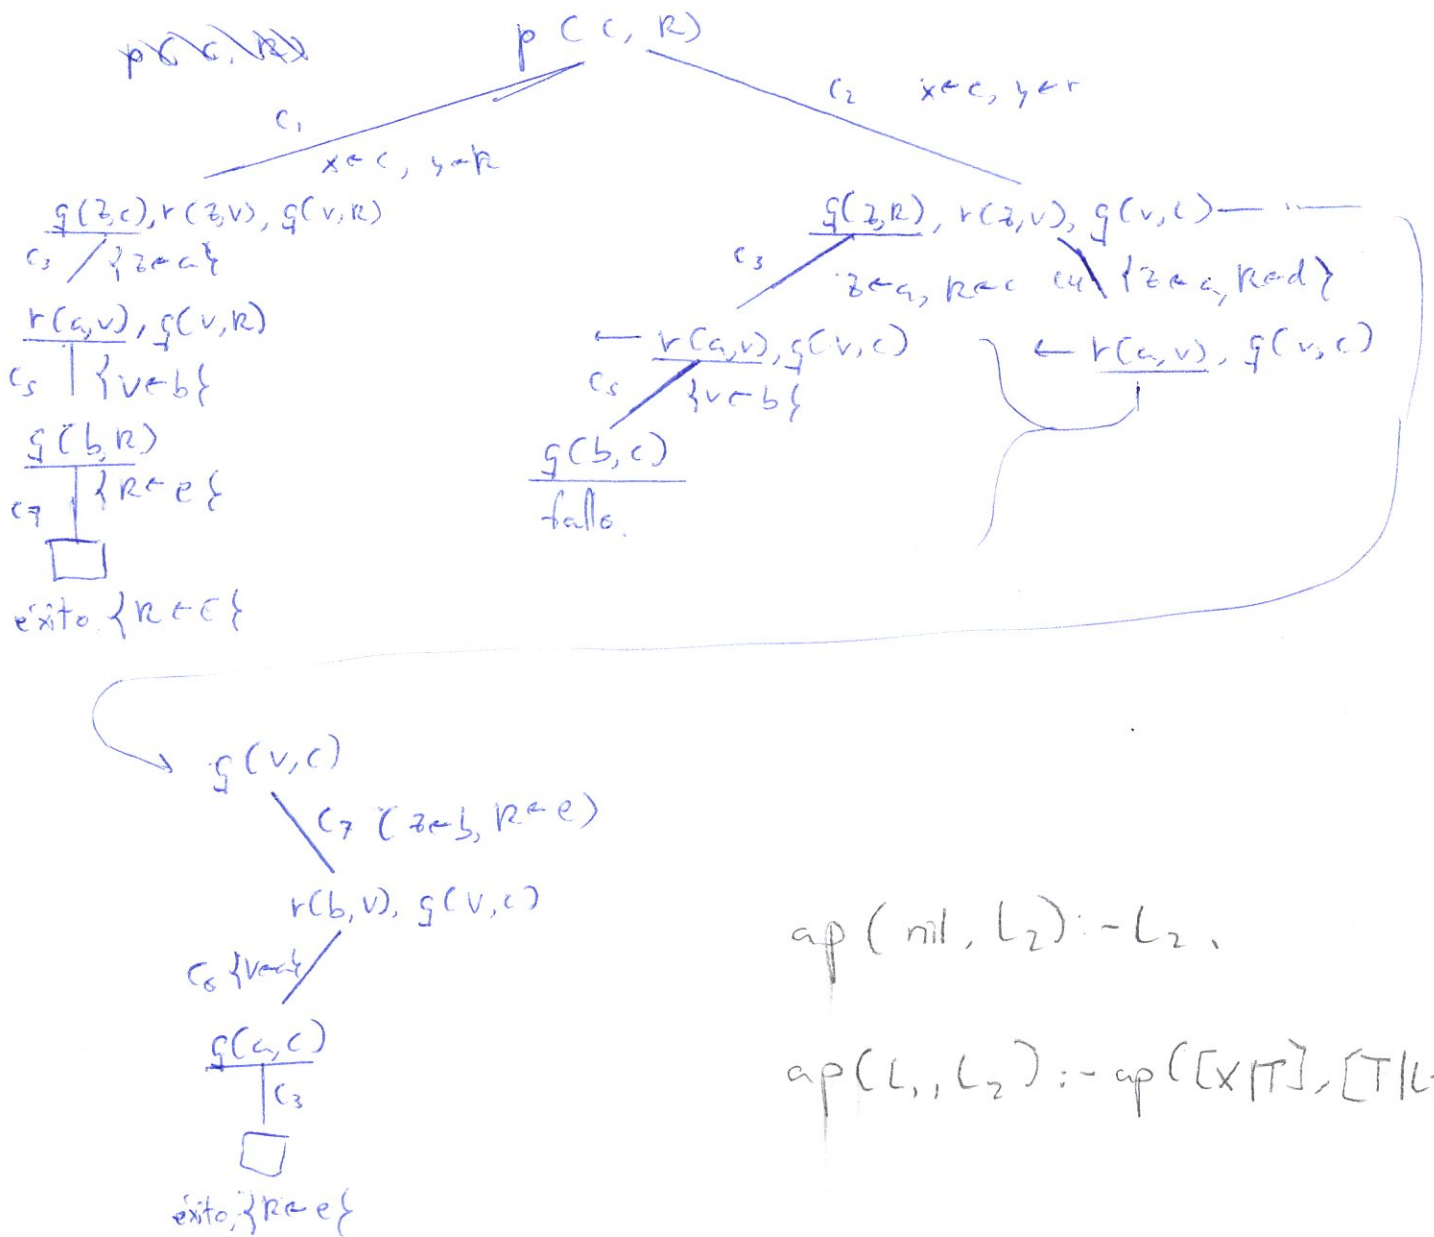 p(c, R)
c1 x←c, y←R
c2 x←c, y←r
g(z,c), r(z,v), g(v,R)
c3 {z←a}
r(a,v), g(v,R)
c5 {v←b}
g(b,R)
c7 {R←e}
éxito, {R←e}
g(z,R), r(z,v), g(v,c)
c3 z←a, R←c c4 {z←a, R←d}
← r(a,v), g(v,c)
← r(a,v), g(v,c)
c5 {v←b}
g(b,c)
fallo.
g(v,c)
c7 (z←b, R←e)
r(b,v), g(v,c)
c6 {v←a}
g(a,c)
c3
éxito, {R←e}
ap(nil, L2):-L2.
ap(L1, L2):-ap([X|T], [T|L